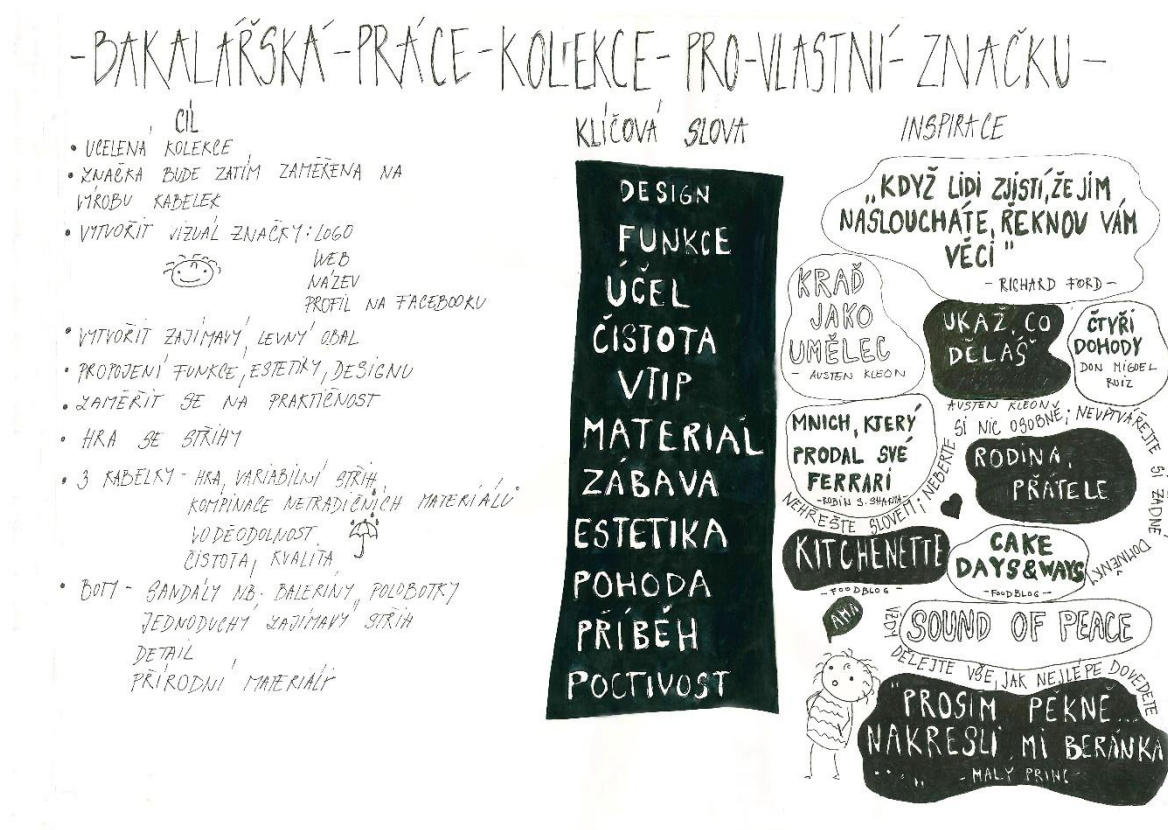 -BAKALÁŘSKÁ-PRÁCE-KOLEKCE-PRO-VLASTNÍ-ZNAČKU-
CÍL
• UCELENÁ KOLEKCE
• ZNAČKA BUDE ZATÍM ZAMĚŘENA NA
VÝROBU KABELEK
• VYTVOŘIT VIZUÁL ZNAČKY: LOGO
WEB
NÁZEV
PROFIL NA FACEBOOKU
• VYTVOŘIT ZAJÍMAVÝ, LEVNÝ OBAL
• PROPOJENÍ FUNKCE, ESTETIKY, DESIGNU
• ZAMĚŘIT SE NA PRAKTIČNOST
• HRA SE STŘIHY
• 3 KABELKY - HRA, VARIABILNÍ STŘIH,
KOMBINACE NETRADIČNÍCH MATERIÁLŮ
VODĚODOLNOST
ČISTOTA, KVALITA
• BOTY - SANDÁLY NB. BALERÍNY, POLOBOTKY
JEDNODUCHÝ ZAJÍMAVÝ STŘIH
DETAIL
PŘÍRODNÍ MATERIÁLY
KLÍČOVÁ SLOVA
DESIGN
FUNKCE
ÚČEL
ČISTOTA
VTIP
MATERIAL
ZÁBAVA
ESTETIKA
POHODA
PŘÍBĚH
POCTIVOST
INSPIRACE
„KDYŽ LIDI ZJISTÍ, ŽE JIM
NASLOUCHÁTE, ŘEKNOU VÁM
VĚCI"
- RICHARD FORD -
KRAĎ
JAKO
UMĚLEC
- AUSTEN KLEON
UKAŽ, CO
DĚLÁŠ
AUSTEN KLEON
ČTYŘI
DOHODY
DON MIGUEL
RUIZ
MNICH, KTERÝ
PRODAL SVÉ
FERRARI
-ROBIN S. SHARMA-
NEHŘEŠTE SLOVEM; NEBERTE SI NIC OSOBNĚ; NEVYTVÁŘEJTE SI ŽÁDNÉ DOMNĚNKY
RODINA,
PŘÁTELE
KITCHENETTE
- FOODBLOG -
CAKE
DAYS&WAYS
- FOODBLOG -
AHA
SOUND OF PEACE
VŽDY DĚLEJTE VŠE, JAK NEJLÉPE DOVEDETE
"PROSÍM PĚKNĚ...
NAKRESLI MI BERÁNKA
..."
- MALÝ PRINC -